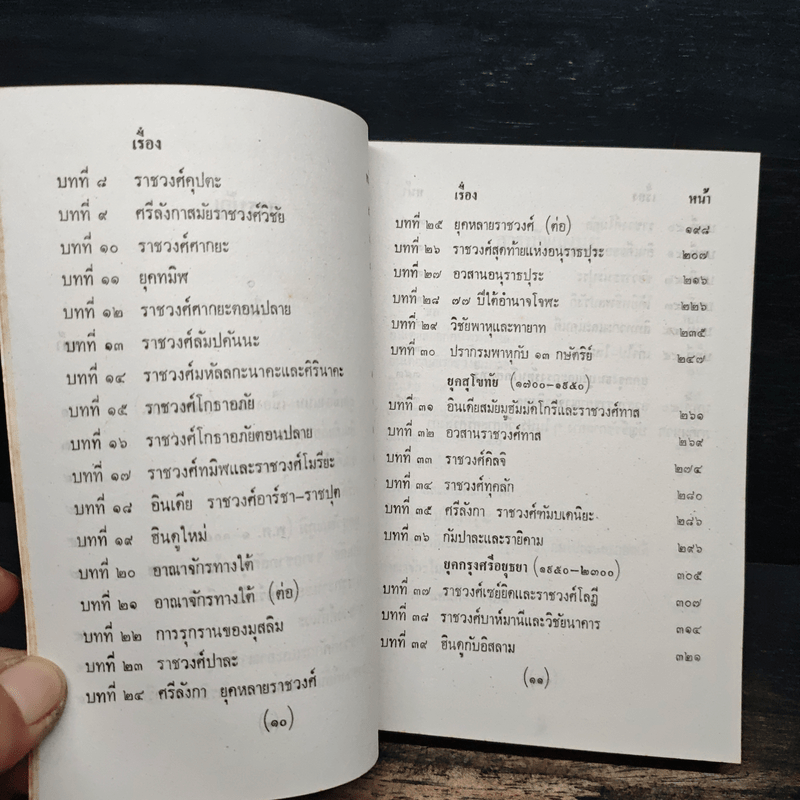 เรื่อง
บทที่ ๘ ราชวงศ์คุปตะ
บทที่ ๙ ศรีลังกาสมัยราชวงศ์วิชัย
บทที่ ๑๐ ราชวงศ์ศากยะ
บทที่ ๑๑ ยุคทมิฬ
บทที่ ๑๒ ราชวงศ์ศากยะตอนปลาย
บทที่ ๑๓ ราชวงศ์ลัมปคันนะ
บทที่ ๑๔ ราชวงศ์มหัลลกะนาคะและศิรินาคะ
บทที่ ๑๕ ราชวงศ์โกธาอภัย
บทที่ ๑๖ ราชวงศ์โกธาอภัยตอนปลาย
บทที่ ๑๗ ราชวงศ์ทมิฬและราชวงศ์โมริยะ
บทที่ ๑๘ อินเดีย ราชวงศ์อาร์ชา-ราชปุต
บทที่ ๑๙ ฮินดูใหม่
บทที่ ๒๐ อาณาจักรทางใต้
บทที่ ๒๑ อาณาจักรทางใต้ (ต่อ)
บทที่ ๒๒ การรุกรานของมุสลิม
บทที่ ๒๓ ราชวงศ์ปาละ
บทที่ ๒๔ ศรีลังกา ยุคหลายราชวงศ์
(๑๐)
เรื่อง หน้า
บทที่ ๒๕ ยุคหลายราชวงศ์ (ต่อ) ๑๙๘
บทที่ ๒๖ ราชวงศ์สุดท้ายแห่งอนุราธปุระ ๒๐๗
บทที่ ๒๗ อวสานอนุราธปุระ ๒๑๖
บทที่ ๒๘ ๗๗ ปีใต้อำนาจโจฬะ ๒๒๖
บทที่ ๒๙ วิชัยพาหุและทายาท ๒๓๕
บทที่ ๓๐ ปรากรมพาหุกับ ๑๓ กษัตริย์ ๒๔๗
ยุคสุโขทัย (๑๗๐๐-๑๙๕๐)
บทที่ ๓๑ อินเดียสมัยมูฮัมมัดโกรีและราชวงศ์ทาส ๒๖๑
บทที่ ๓๒ อวสานราชวงศ์ทาส ๒๖๙
บทที่ ๓๓ ราชวงศ์คิลจิ ๒๗๔
บทที่ ๓๔ ราชวงศ์ทุคลัก ๒๘๐
บทที่ ๓๕ ศรีลังกา ราชวงศ์ฑัมบเดนิยะ ๒๘๖
บทที่ ๓๖ กัมปาละและรายิคาม ๒๙๖
ยุคกรุงศรีอยุธยา (๑๙๕๐-๒๓๐๐) ๓๐๕
บทที่ ๓๗ ราชวงศ์เซย์ยิดและราชวงศ์โลฎี ๓๐๗
บทที่ ๓๘ ราชวงศ์บาห์มานีและวิชัยนาคาร ๓๑๔
บทที่ ๓๙ ฮินดูกับอิสลาม ๓๒๑
(๑๑)